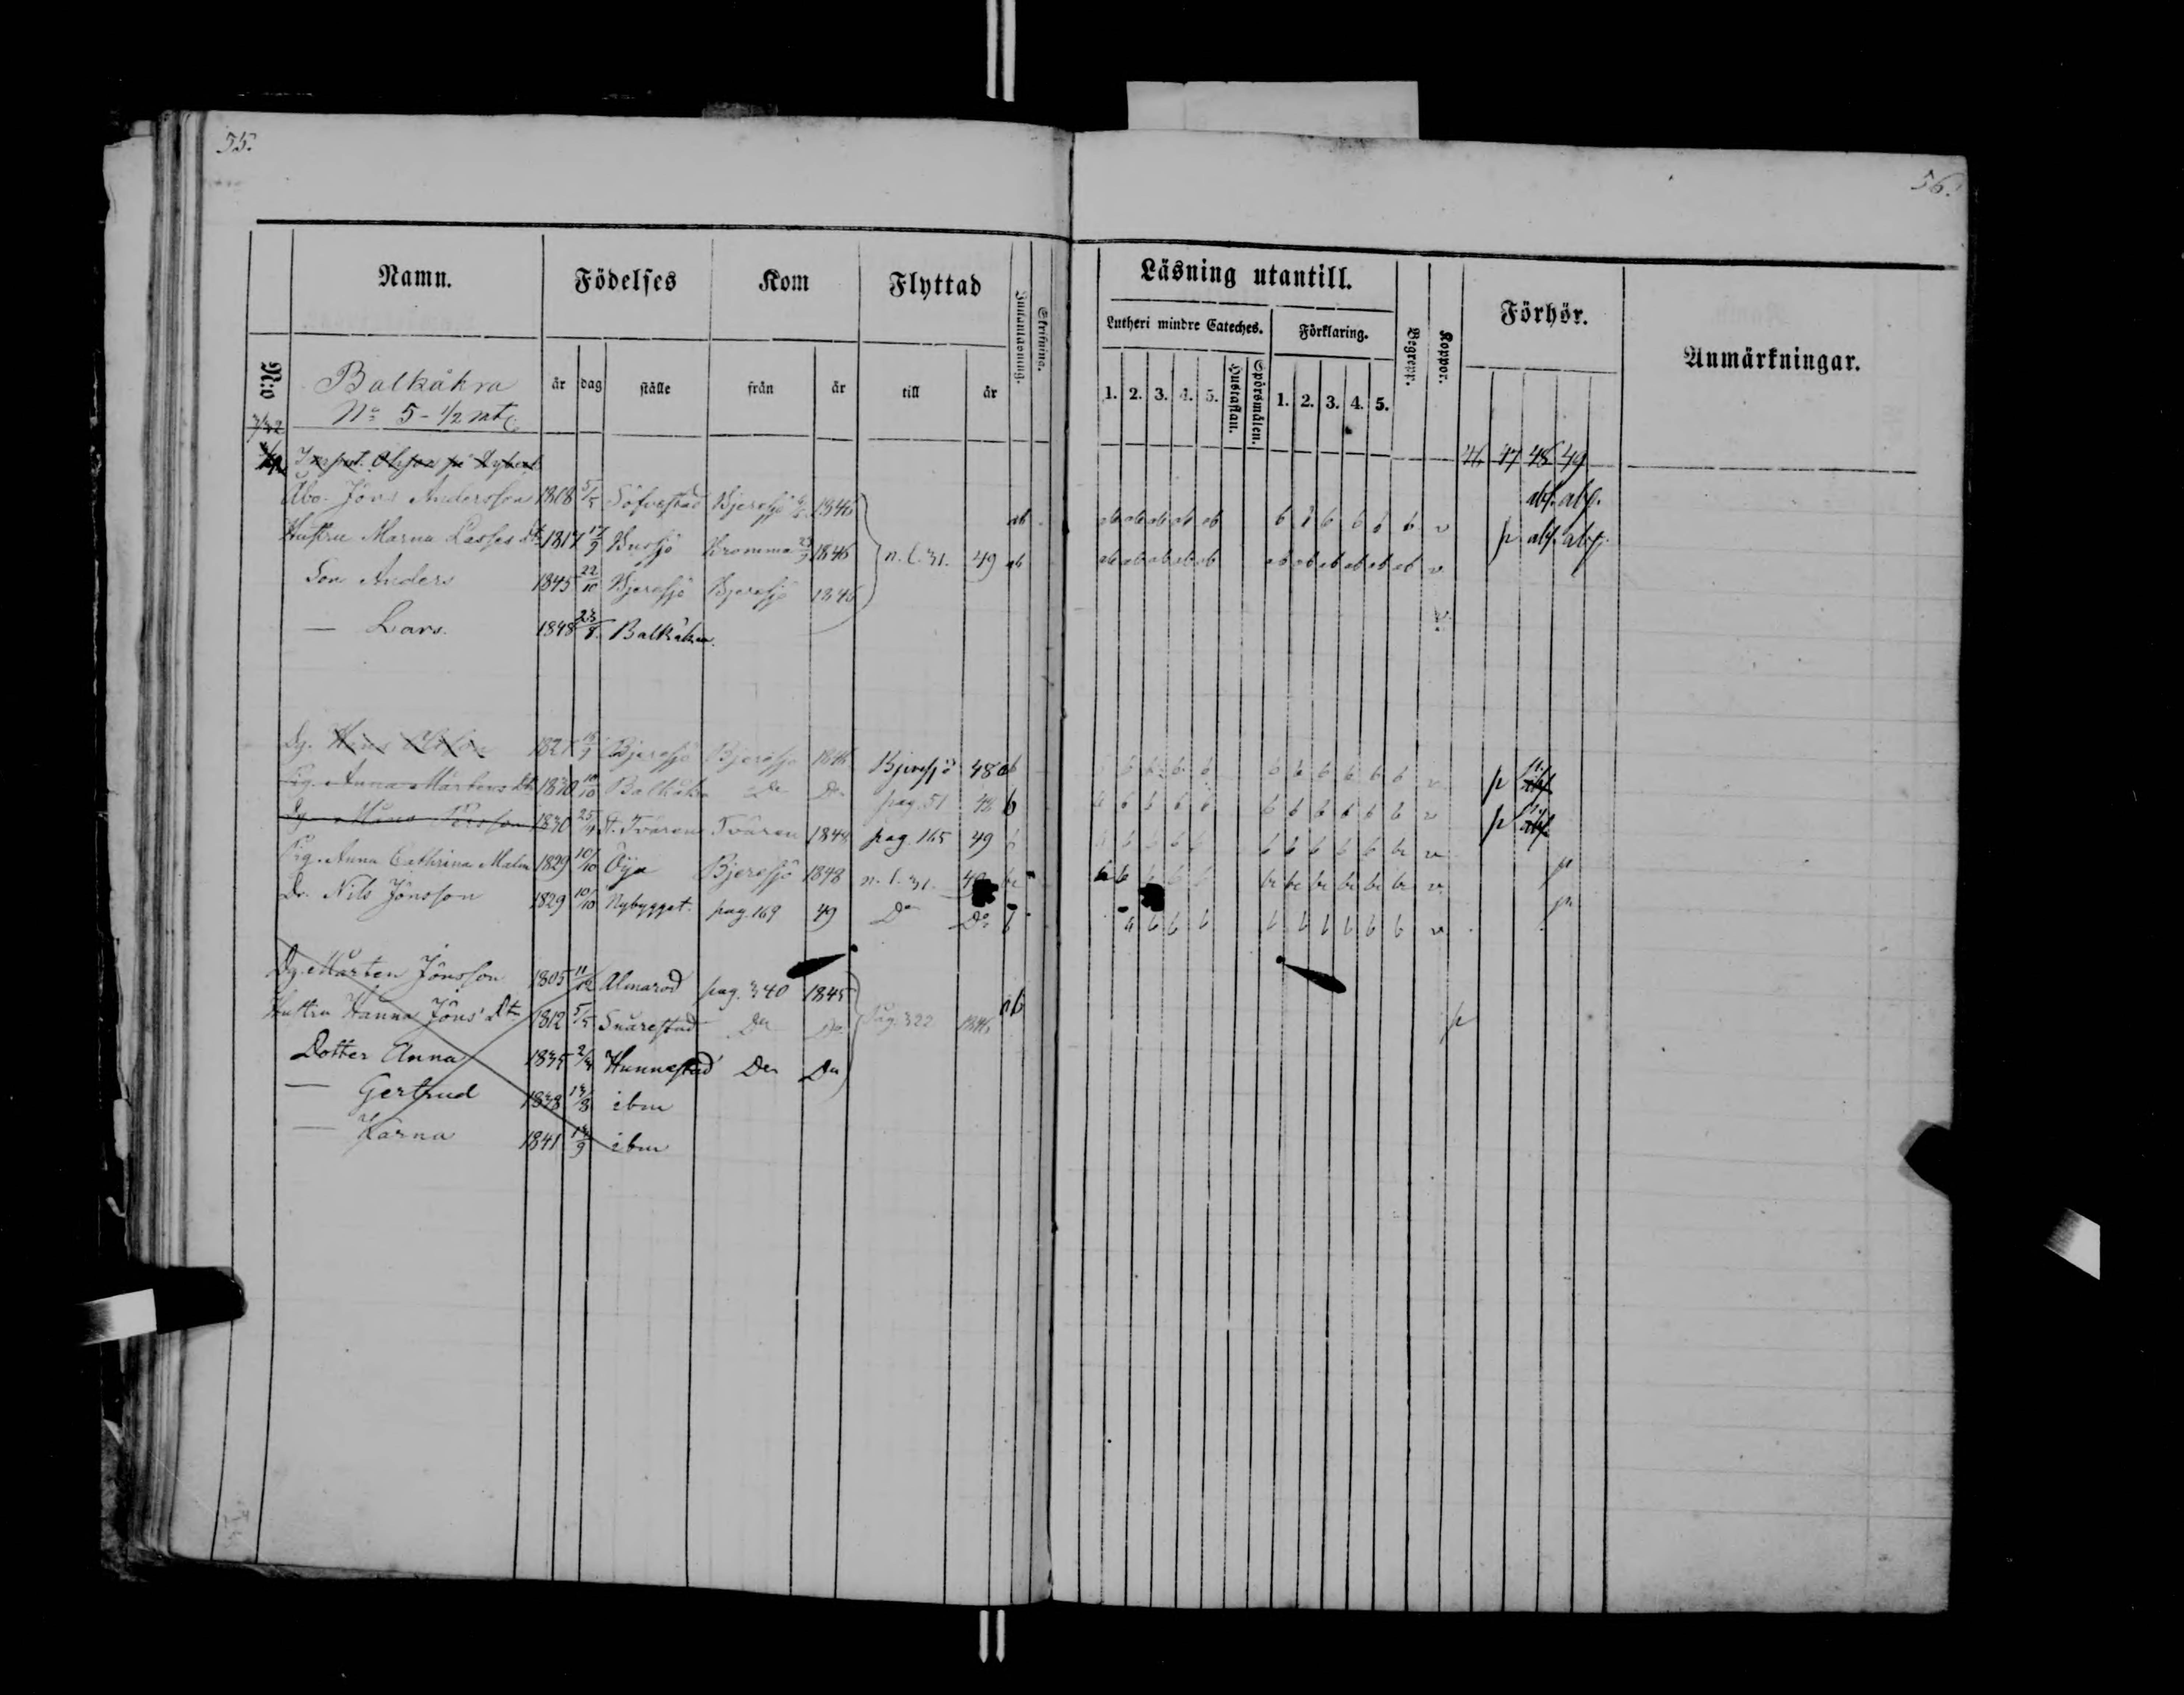 55.
56.
Namn. Födelses Kom Flyttad Innanläsning. Skrifning. Läsning utantill. Begrepp. Koppor. Förhör. Anmärkningar.
Lutheri mindre Cateches. Förklaring.
N:o Balkåkra år dag ställe från år till år 1. 2. 3. 4. 5. Hustaflan. Spörsmålen. 1. 2. 3. 4. 5.
No 5 - 1/2 mtl
46 47 48 49
Åbo. Jöns Andersson 1818 5/5 Söfvestad Bjeresjö 1846 ab ab ab ab ab ab b b b b b b v abs. abs.
Hustru Marna Lasses Dr 1817 17/9 Bussjö Kromma 1846 n. l. 31. 49 ab ab ab ab ab ab ab ab ab ab ab ab v p abs. abs.
Son Anders 1845 22/10 Bjeresjö Bjeresjö 1846
— Lars. 1848 23/8 Balkåkra. v.
Dg. Bjeresjö Bjeresjö 1846 Bjeresjö 48 ab b b b b b b b b b b v p
Pig. Anna Mårtens Dr 1830 10/10 Balkåkra Do Do pag. 51 48 b b b b b b b b b b b b v p
Dg. Måns Persson 1830 25/4 St. Tvären Tvären 1844 pag. 165 49 b b b b b b b b b b b v
Pig. Anna Cathrina Malm 1829 10/10 Öja Bjeresjö 1848 n. l. 31. 49 b b b b b b v p
Dr. Nils Jönsson 1829 10/10 Nybygget. pag. 169 49 Do Do b b b b b b b b b b v p
Dg. Mårten Jönsson 1805 11/12 Almarod pag. 340 1845
Hustru Hanna Jöns' Dtr 1812 5/5 Snarestad Do Do Pag. 322 1846 ab p
Dotter Elna 1835 Hunnestad Do Do
— Gertrud 1838 13/8 ibm
— Karna 1841 ibm